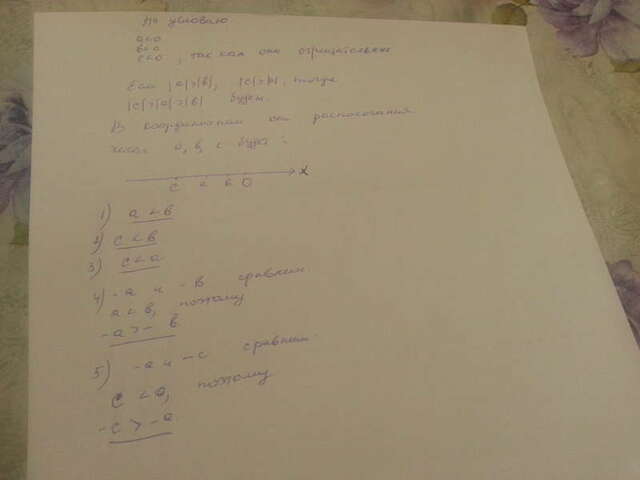 По условию
a<0
b<0
c<0, так как они отрицательные
Если |a|>|b|, тогда
|c|>|a|>|b| будет.
В координатной расположения
чисел a, b, c будет:
c a b 0 x
1) a < b
2) c < b
3) c < a
4) -a и -b сравним.
a < b, поэтому
-a > -b
5) -a и -c сравним.
c < a, поэтому
-c > -a